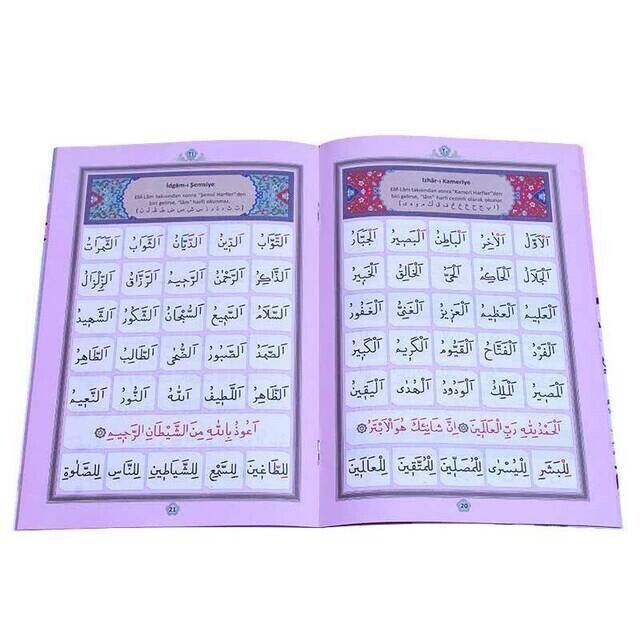 ٢٠
Izhâr-ı Kameriye
Elif-Lâm takısından sonra "Kamerî Harfler"den
biri gelirse, "lâm" harfi cezimli olarak okunur.
اَلْاَوَّلُ اَلْاٰخِرُ اَلْبَاطِنُ اَلْبَصِيرُ اَلْجَبَّارُ
اَلْجَلَالُ اَلْحَاكِمُ اَلْحَيُّ اَلْخَالِقُ اَلْخَبِيرُ
اَلْعَلِيمُ اَلْعَظِيمُ اَلْعَزِيزُ اَلْغَنِيُّ اَلْغَفُورُ
اَلْفَرْدُ اَلْفَتَّاحُ اَلْقَيُّومُ اَلْكَرِيمُ اَلْكَبِيرُ
اَلْمَصِيرُ اَلْمَلِكُ اَلْوَدُودُ اَلْهُدٰى اَلْيَقِينُ
اَلْحَمْدُ لِلّٰهِ رَبِّ الْعَالَمِينَ ۞ اِنَّ شَانِئَكَ هُوَ الْاَبْتَرُ ۞
لِلْبَشَرِ لِلْيُسْرٰى لِلْمُصَلِّينَ لِلْمُتَّقِينَ لِلْعَالَمِينَ
20
٢١
İdgâm-ı Şemsiye
Elif-Lâm takısından sonra "Şemsî Harfler"den
biri gelirse, "lâm" harfi okunmaz.
(ت ث د ذ ر ز س ش ص ض ط ظ ل ن)
اَلتَّوَّابُ اَلدِّينُ اَلدَّيَّانُ اَلثَّوَابُ اَلثَّمَرَاتُ
اَلذَّاكِرُ اَلرَّحْمٰنُ اَلرَّحِيمُ اَلرَّزَّاقُ اَلزِّلْزَالُ
اَلسَّلَامُ اَلسَّمِيعُ اَلسُّبْحَانُ اَلشَّكُورُ اَلشَّهِيدُ
اَلصَّمَدُ اَلصَّبُورُ اَلضُّحٰى اَلطَّالِبُ اَلطَّاهِرُ
اَلظَّاهِرُ اَللَّطِيفُ اَللّٰهُ اَلنُّورُ اَلنَّعِيمُ
اَعُوذُ بِاللّٰهِ مِنَ الشَّيْطَانِ الرَّجِيمِ
لِلطَّاغِينَ لِلسَّبْعِ لِلشَّيَاطِينِ لِلنَّاسِ لِلصَّلٰوةِ
21